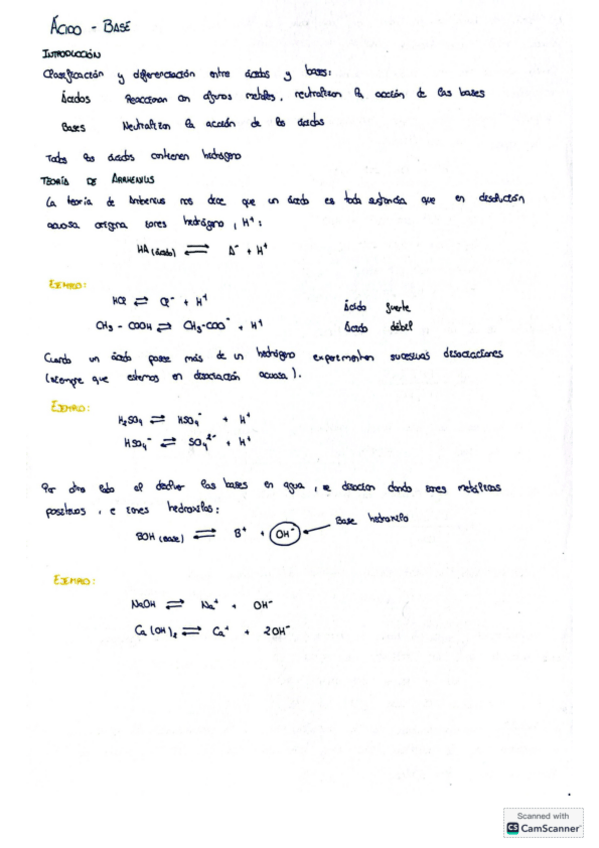 ÁCIDO - BASE
INTRODUCCIÓN
Clasificación y diferenciación entre ácidos y bases:
Ácidos Reaccionan con algunos metales, neutralizan la acción de las bases
Bases Neutralizan la acción de los ácidos
Todos los ácidos contienen hidrógeno
TEORÍA DE ARRHENIUS
La teoría de Arrhenius nos dice que un ácido es toda sustancia que en disolución
acuosa origina iones hidrógeno, H⁺:
HA (ácido) ⇌ A⁻ + H⁺
EJEMPLO:
HCl ⇌ Cl⁻ + H⁺ Ácido fuerte
CH₃ - COOH ⇌ CH₃-COO⁻ + H⁺ Ácido débil
Cuando un ácido posee más de un hidrógeno experimentan sucesivas disociaciones
(siempre que estemos en disociación acuosa).
EJEMPLO:
H₂SO₄ ⇌ HSO₄⁻ + H⁺
HSO₄⁻ ⇌ SO₄²⁻ + H⁺
Por otro lado al disolver las bases en agua, se disocian dando iones metálicos
positivos, e iones hidroxilos:
BOH (base) ⇌ B⁺ + OH⁻ ← Base hidroxilo
EJEMPLO:
NaOH ⇌ Na⁺ + OH⁻
Ca(OH)₂ ⇌ Ca⁺ + 2OH⁻
Scanned with
CS CamScanner